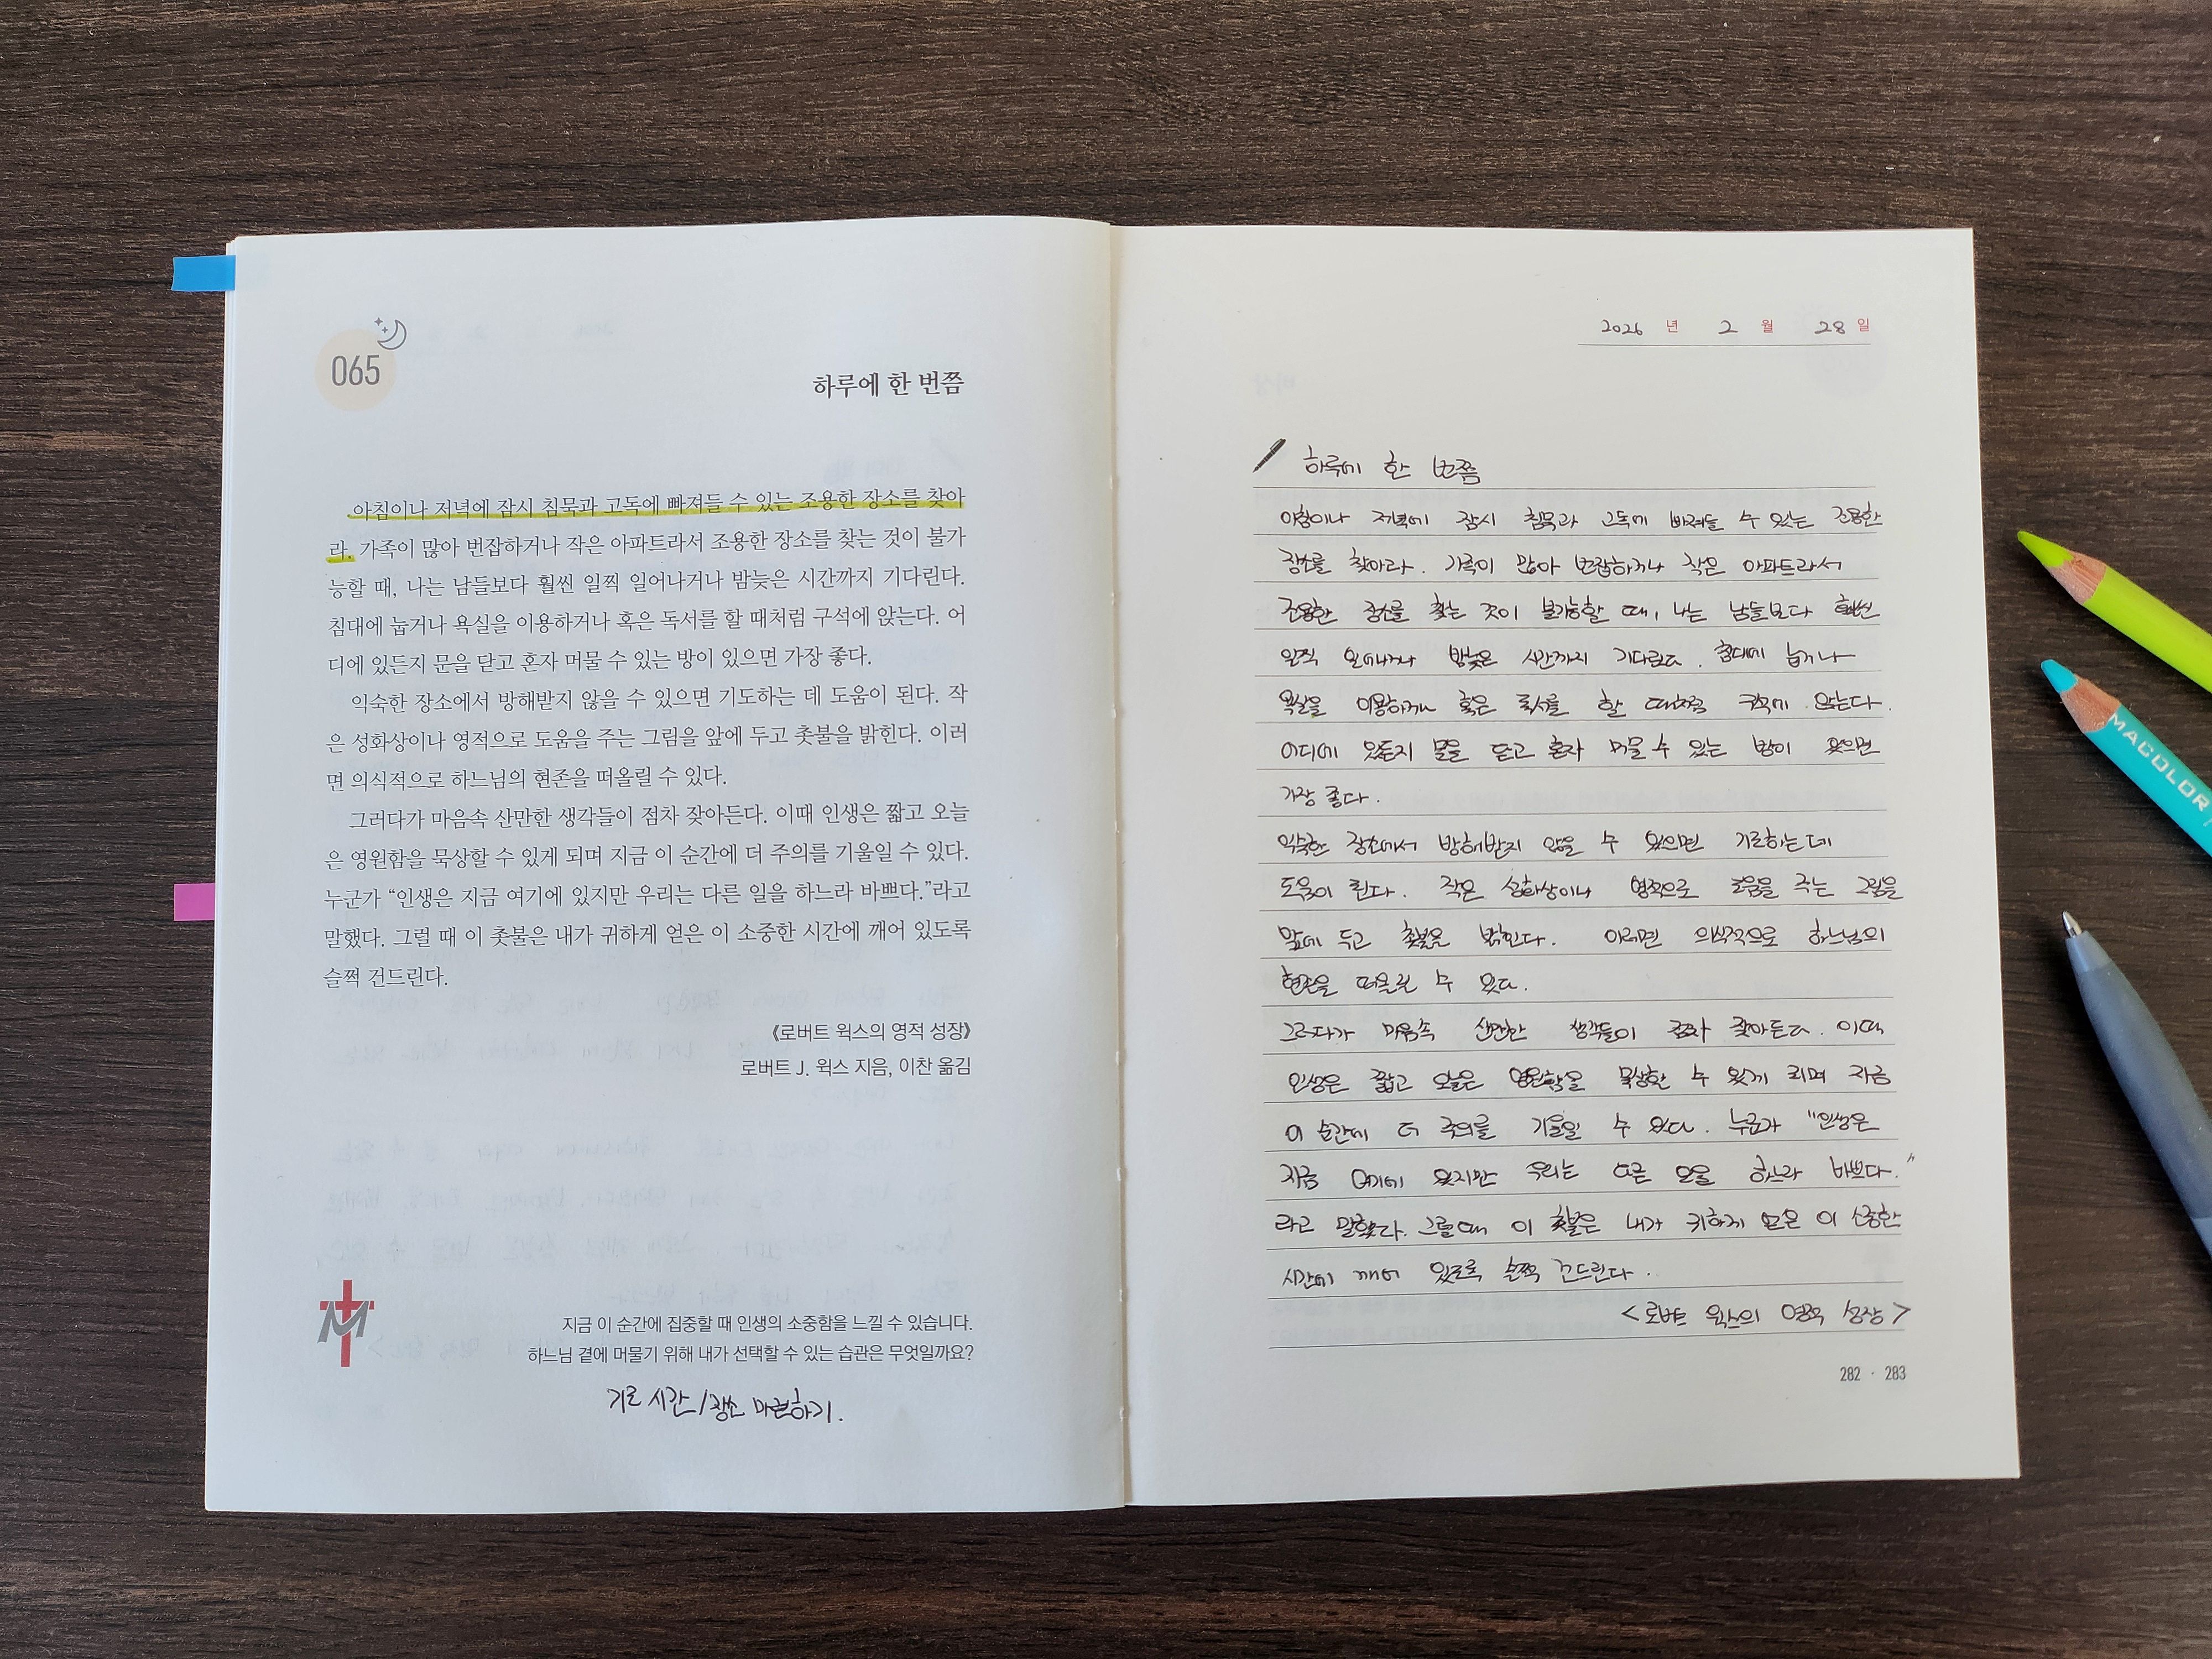 065
하루에 한 번쯤
아침이나 저녁에 잠시 침묵과 고독에 빠져들 수 있는 조용한 장소를 찾아
라. 가족이 많아 번잡하거나 작은 아파트라서 조용한 장소를 찾는 것이 불가
능할 때, 나는 남들보다 훨씬 일찍 일어나거나 밤늦은 시간까지 기다린다.
침대에 눕거나 욕실을 이용하거나 혹은 독서를 할 때처럼 구석에 앉는다. 어
디에 있든지 문을 닫고 혼자 머물 수 있는 방이 있으면 가장 좋다.
익숙한 장소에서 방해받지 않을 수 있으면 기도하는 데 도움이 된다. 작
은 성화상이나 영적으로 도움을 주는 그림을 앞에 두고 촛불을 밝힌다. 이러
면 의식적으로 하느님의 현존을 떠올릴 수 있다.
그러다가 마음속 산만한 생각들이 점차 잦아든다. 이때 인생은 짧고 오늘
은 영원함을 묵상할 수 있게 되며 지금 이 순간에 더 주의를 기울일 수 있다.
누군가 “인생은 지금 여기에 있지만 우리는 다른 일을 하느라 바쁘다.”라고
말했다. 그럴 때 이 촛불은 내가 귀하게 얻은 이 소중한 시간에 깨어 있도록
슬쩍 건드린다.
《로버트 윅스의 영적 성장》
로버트 J. 윅스 지음, 이찬 옮김
지금 이 순간에 집중할 때 인생의 소중함을 느낄 수 있습니다.
하느님 곁에 머물기 위해 내가 선택할 수 있는 습관은 무엇일까요?
기도 시간/장소 마련하기.
2026 년 2 월 28 일
하루에 한 번쯤
아침이나 저녁에 잠시 침묵과 고독에 빠져들 수 있는 조용한
장소를 찾아라. 가족이 많아 번잡하거나 작은 아파트라서
조용한 장소를 찾는 것이 불가능할 때, 나는 남들보다 훨씬
일찍 일어나거나 밤늦은 시간까지 기다린다. 침대에 눕거나
욕실을 이용하거나 혹은 독서를 할 때처럼 구석에 앉는다.
어디에 있든지 문을 닫고 혼자 머물 수 있는 방이 있으면
가장 좋다.
익숙한 장소에서 방해받지 않을 수 있으면 기도하는데
도움이 된다. 작은 성화상이나 영적으로 도움을 주는 그림을
앞에 두고 촛불을 밝힌다. 이러면 의식적으로 하느님의
현존을 떠올릴 수 있다.
그러다가 마음속 산만한 생각들이 점차 잦아든다. 이때
인생은 짧고 오늘은 영원함을 묵상할 수 있게 되며 지금
이 순간에 더 주의를 기울일 수 있다. 누군가 "인생은
지금 여기에 있지만 우리는 다른 일을 하느라 바쁘다."
라고 말했다. 그럴 때 이 촛불은 내가 귀하게 얻은 이 소중한
시간에 깨어 있도록 슬쩍 건드린다.
<로버트 윅스의 영적 성장>
282 · 283
MACOLOR